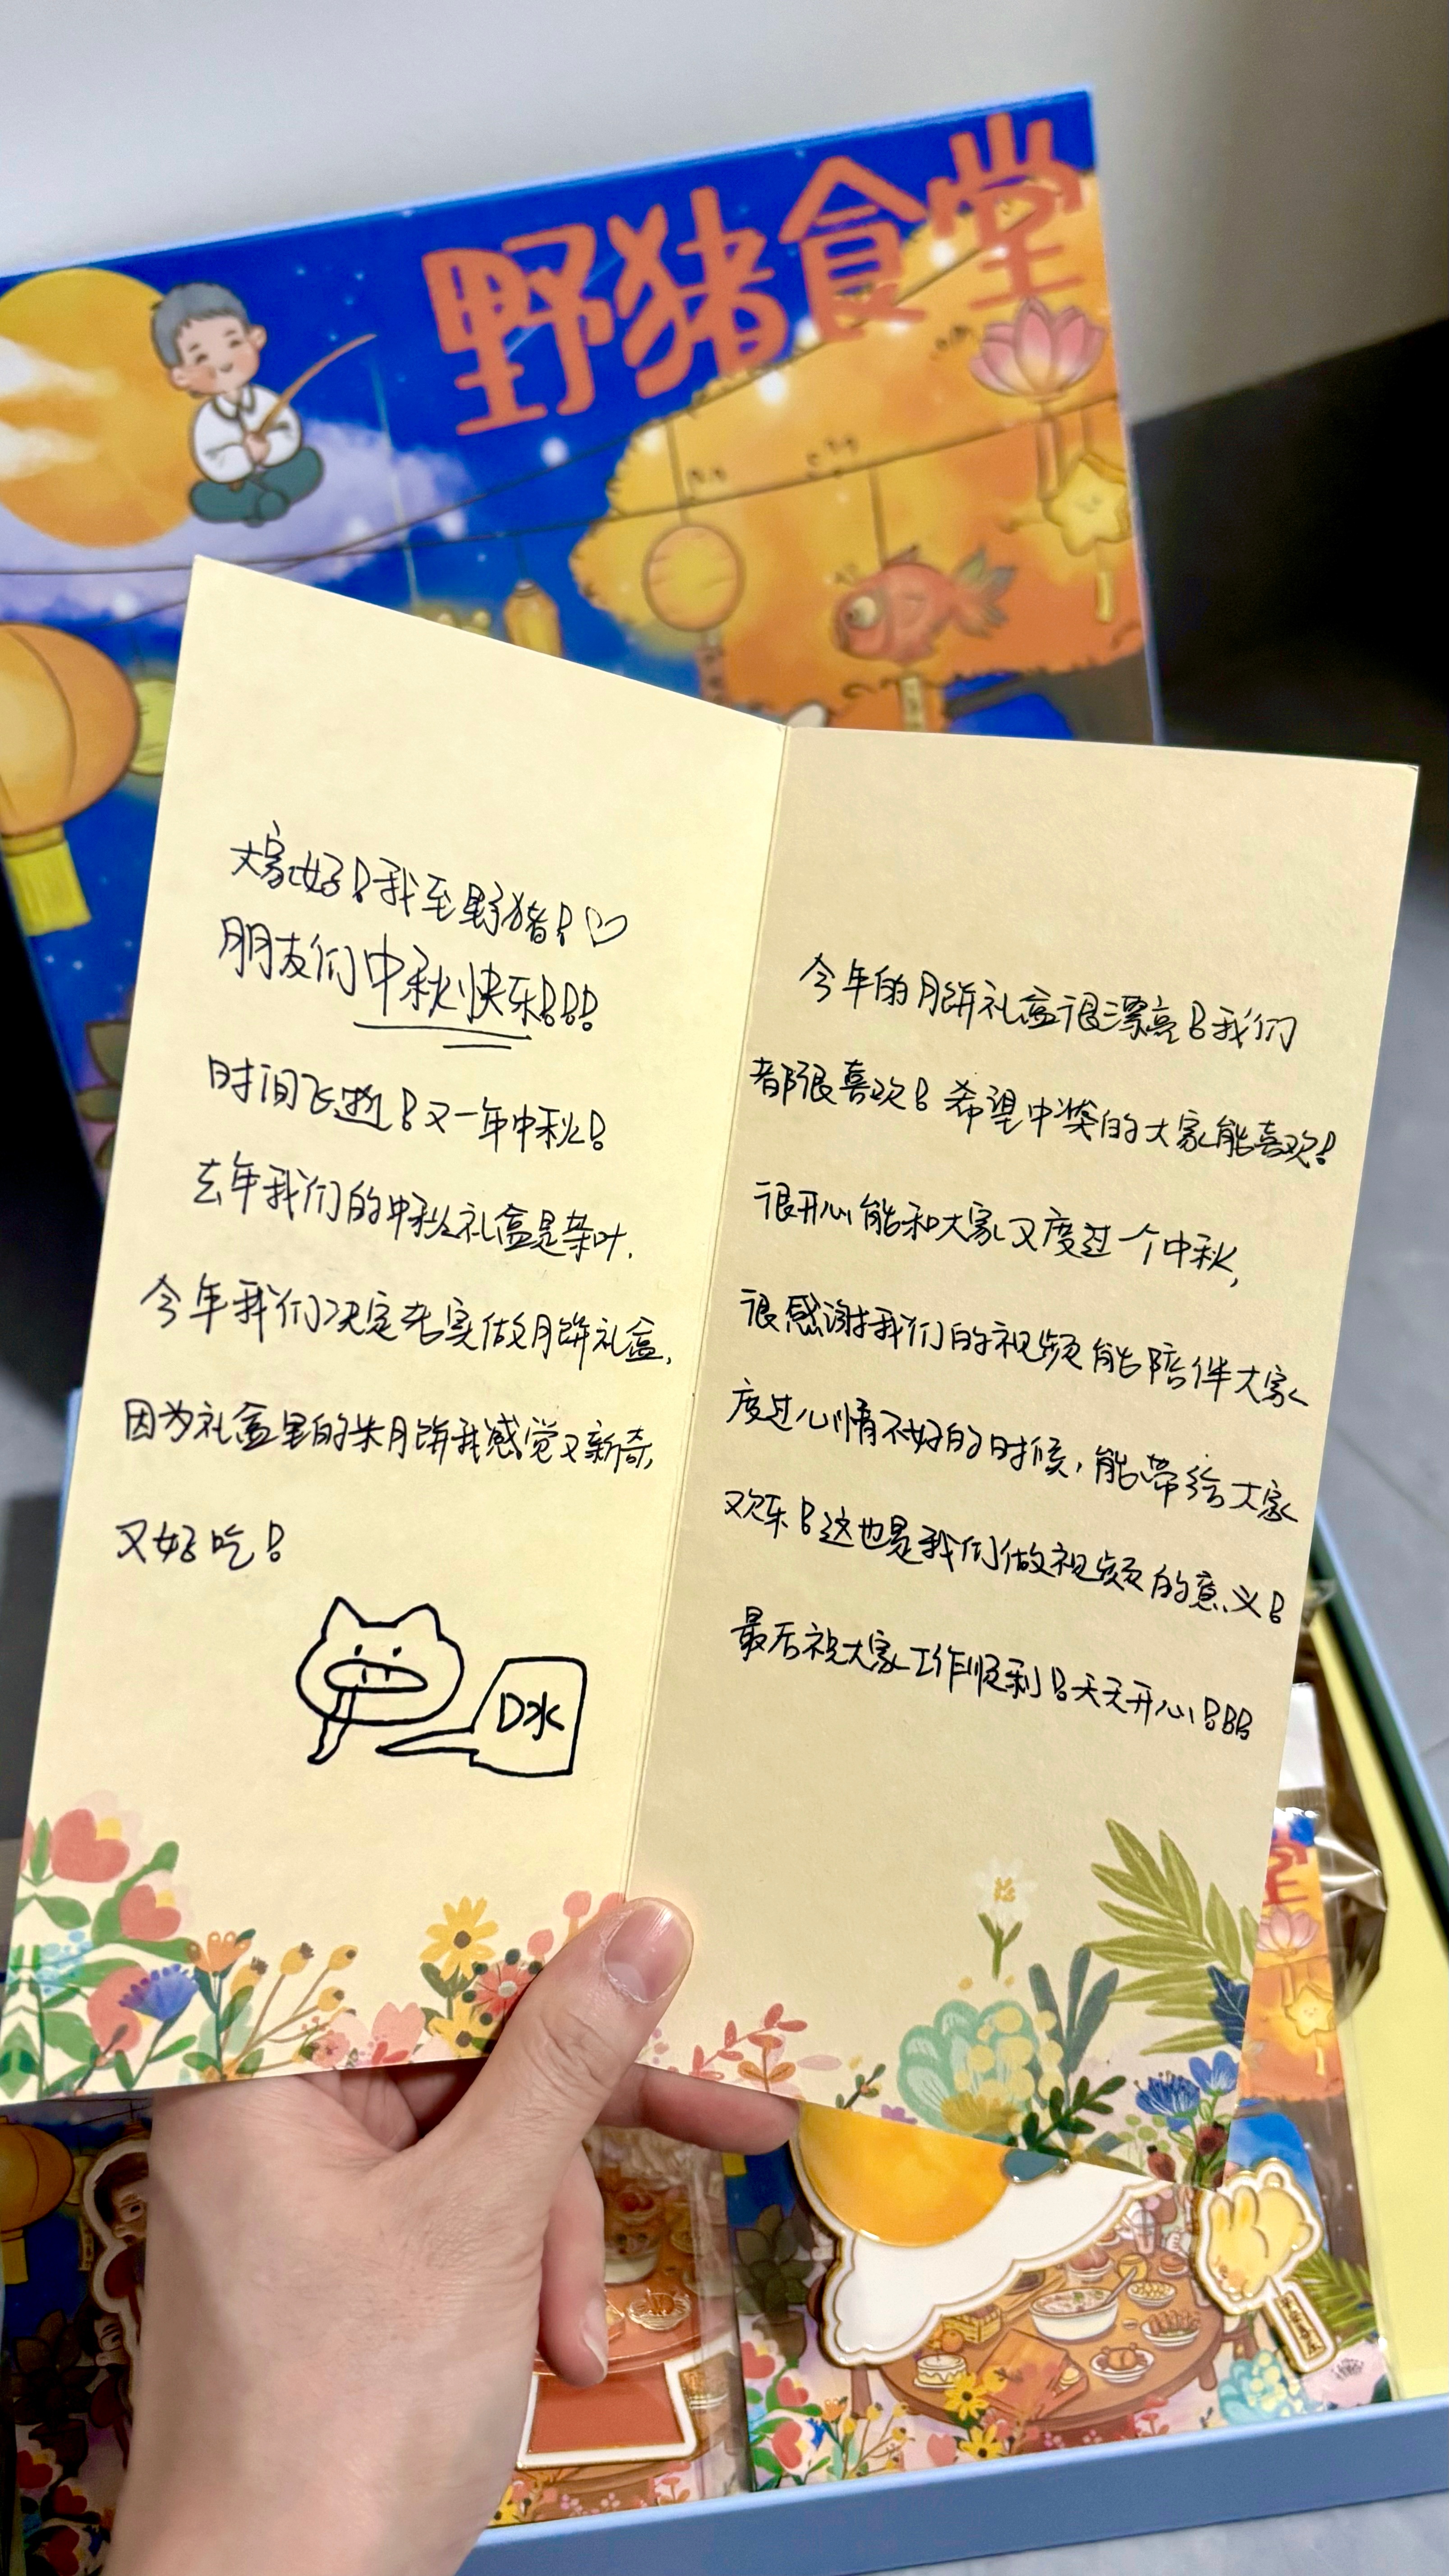 野猪食堂
大家好!我至野猪!♡
朋友们中秋快乐!!!
时间飞逝!又一年中秋!
去年我们的中秋礼盒是茶叶,
今年我们决定老实做月饼礼盒,
因为礼盒里的朱月饼我感觉又新奇,
又好吃!
口水
今年的月饼礼盒很漂亮!我们
都很喜欢!希望中奖的大家能喜欢!
很开心能和大家又度过一个中秋,
很感谢我们的视频能陪伴大家
度过心情不好的时候,能带给大家
欢乐!这也是我们做视频的意义!
最后祝大家工作顺利!天天开心!!!